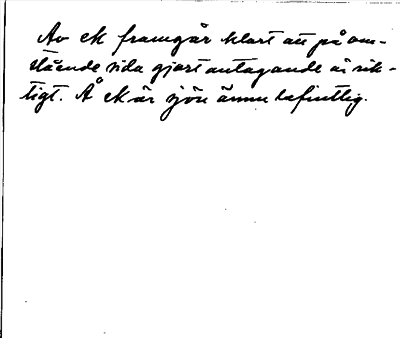 Av ek framgår klart att på om-
stående sida gjort antagande är rik-
tigt. Å ek är sjön ännu befintlig.